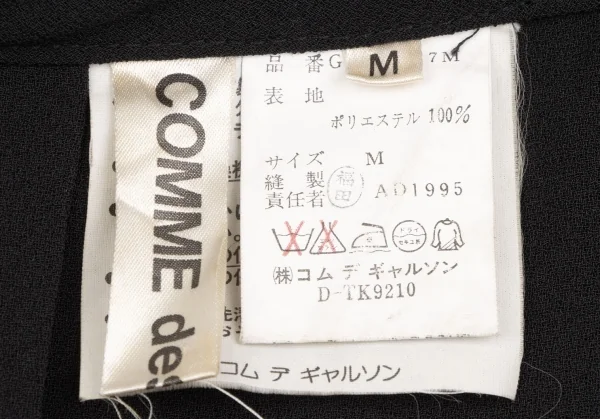 COMME des
M
品番G 7M
表地
ポリエステル 100%
サイズ M
縫製
責任者 福田 AD1995
ドライ
セキユ系
㈱コム デ ギャルソン
D-TK9210
コム デ ギャルソン